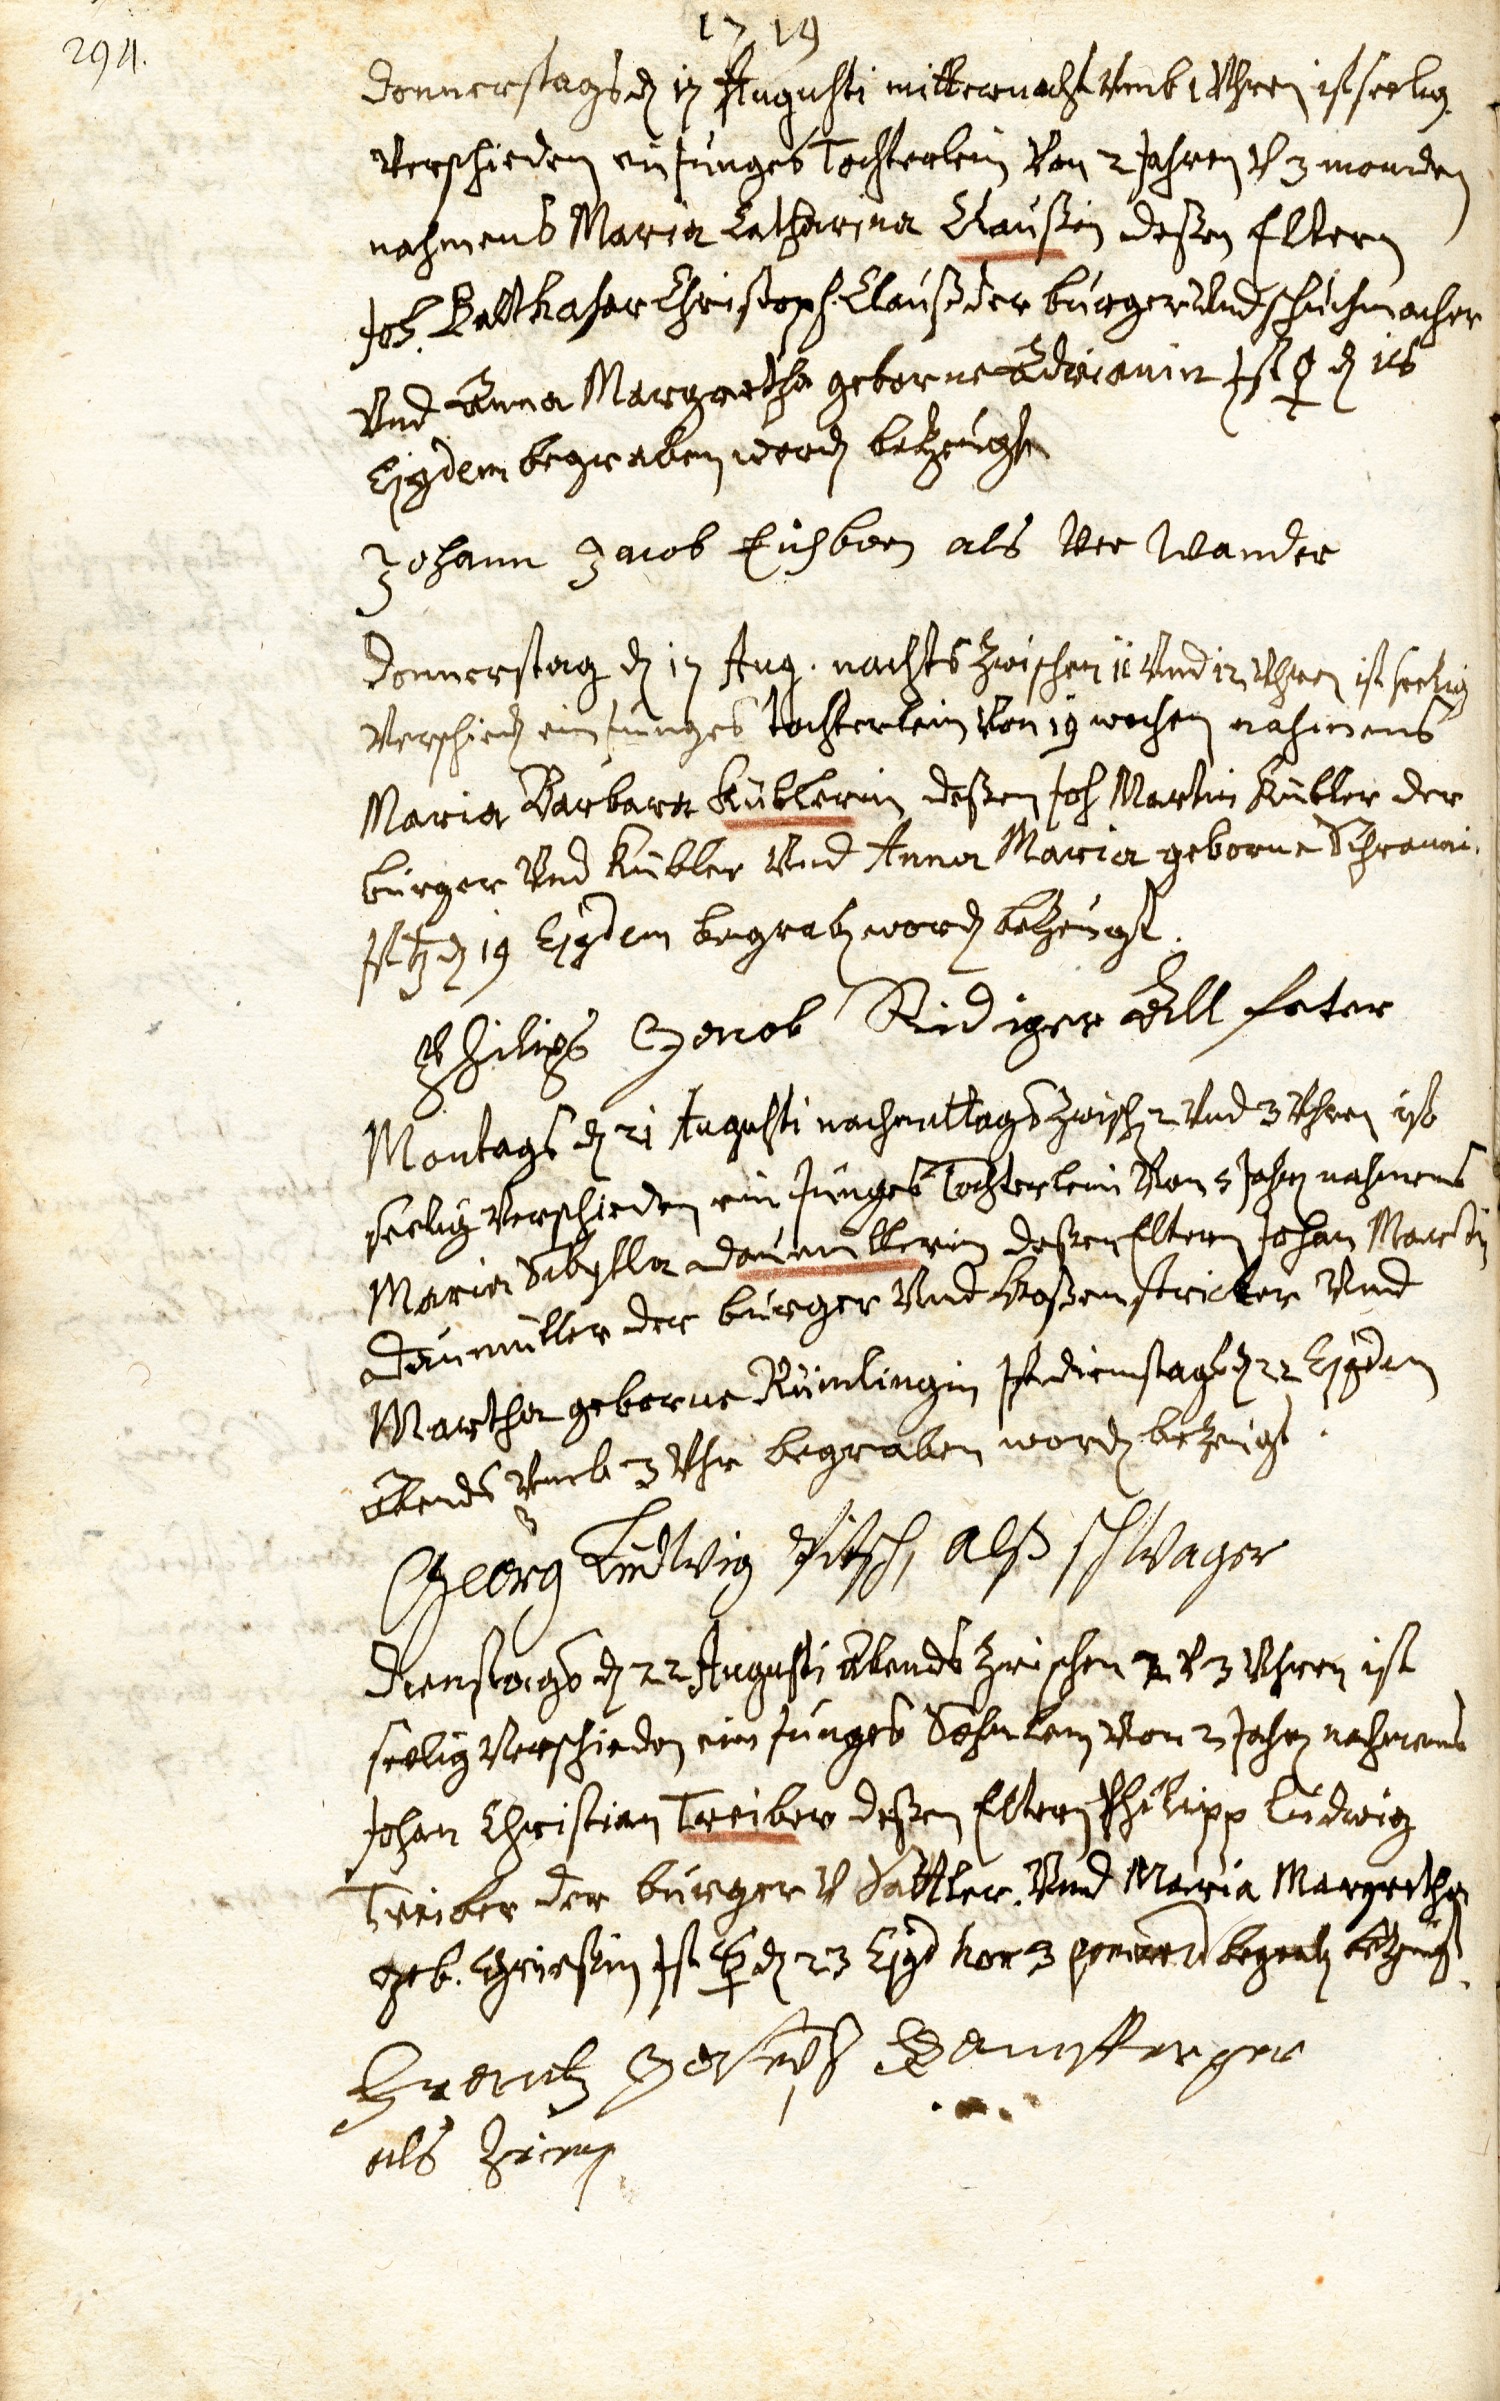 294.
1719
Donnerstags dn 17 Augusti mitternacht Vmb 1 Vhren ist seelig
Verschieden ein Junges Tochterlein Von 2 Jahren V 3 monden
nahmens Maria Catharina Claußin deßen Eltern
Joh. Balthasar Christoph Clauß der burger Vnd schuhmacher
Vnd Anna Margretha geborne Adrianin Ist ♀ dn 18
Ejsdem begraben word betzeugen
Johann Jacob Eichborn als Ver Wander
Donnerstag dn 17 Aug. nachts Zwischen 11 Vnd 12 Vhren ist seelig
Verschied ein Junges tochterlein Von 19 wochen nahmens
Maria Barbara Küblerin deßen Joh Martin Kübler der
burger Vnd Kübler Vnd Anna Maria geborne
Ist ♄ dn 19 Ejsdem begrab word betzeugt.
Philips Jacob Ridiger all fater
Montags dn 21 Augusti nachmittags Zwisch 2 Vnd 3 Vhren ist
seelig Verschieden ein Junges Tochterlein Von 5 Jahr nahmens
Maria Sibylla Daumüllerin deßen Eltern Johan Martin
Daumüller der burger Vnd Hoßenstricker Vnd
Martha geborne Rümlingin Ist dienstags dn 22 Ejsdem
abends Vmb 3 Vhr begraben word betzeugt.
Georg Ludwig Pitsch, alß schwager
Dienstags dn 22 Augusti abends Zwischen 2 V 3 Vhren ist
seelig Verschieden ein Junges Sohnlein Von 2 Jahr nahmens
Johan Christian Treiber deßen Eltern Philipp Ludwig
Treiber der burger V Sattler. Vnd Maria Margretha
geb. Ist ☿ dn 23 Ejsd hor 3 pomerid begrab betzeugt.
Frantz Joseph
als Zeing